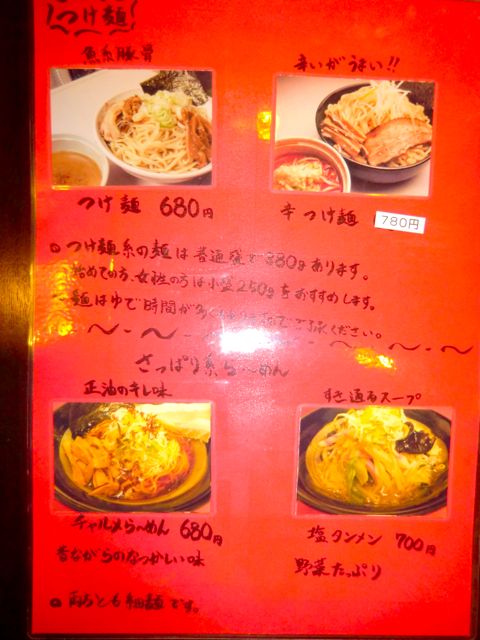 つけ麺
魚系豚骨
辛いがうまい!!
つけ麺 680円
辛つけ麺 780円
つけ麺系の麺は普通盛で380gあります。
始めての方、女性の方は小盛250gをおすすめします。
麺はゆで時間が多く
ご了承ください。
さっぱり系らーめん
正油のキレ味
すき通るスープ
キャルメらーめん 680円
塩タンメン 700円
昔ながらのなつかしい味
野菜たっぷり
両方とも細麺です。